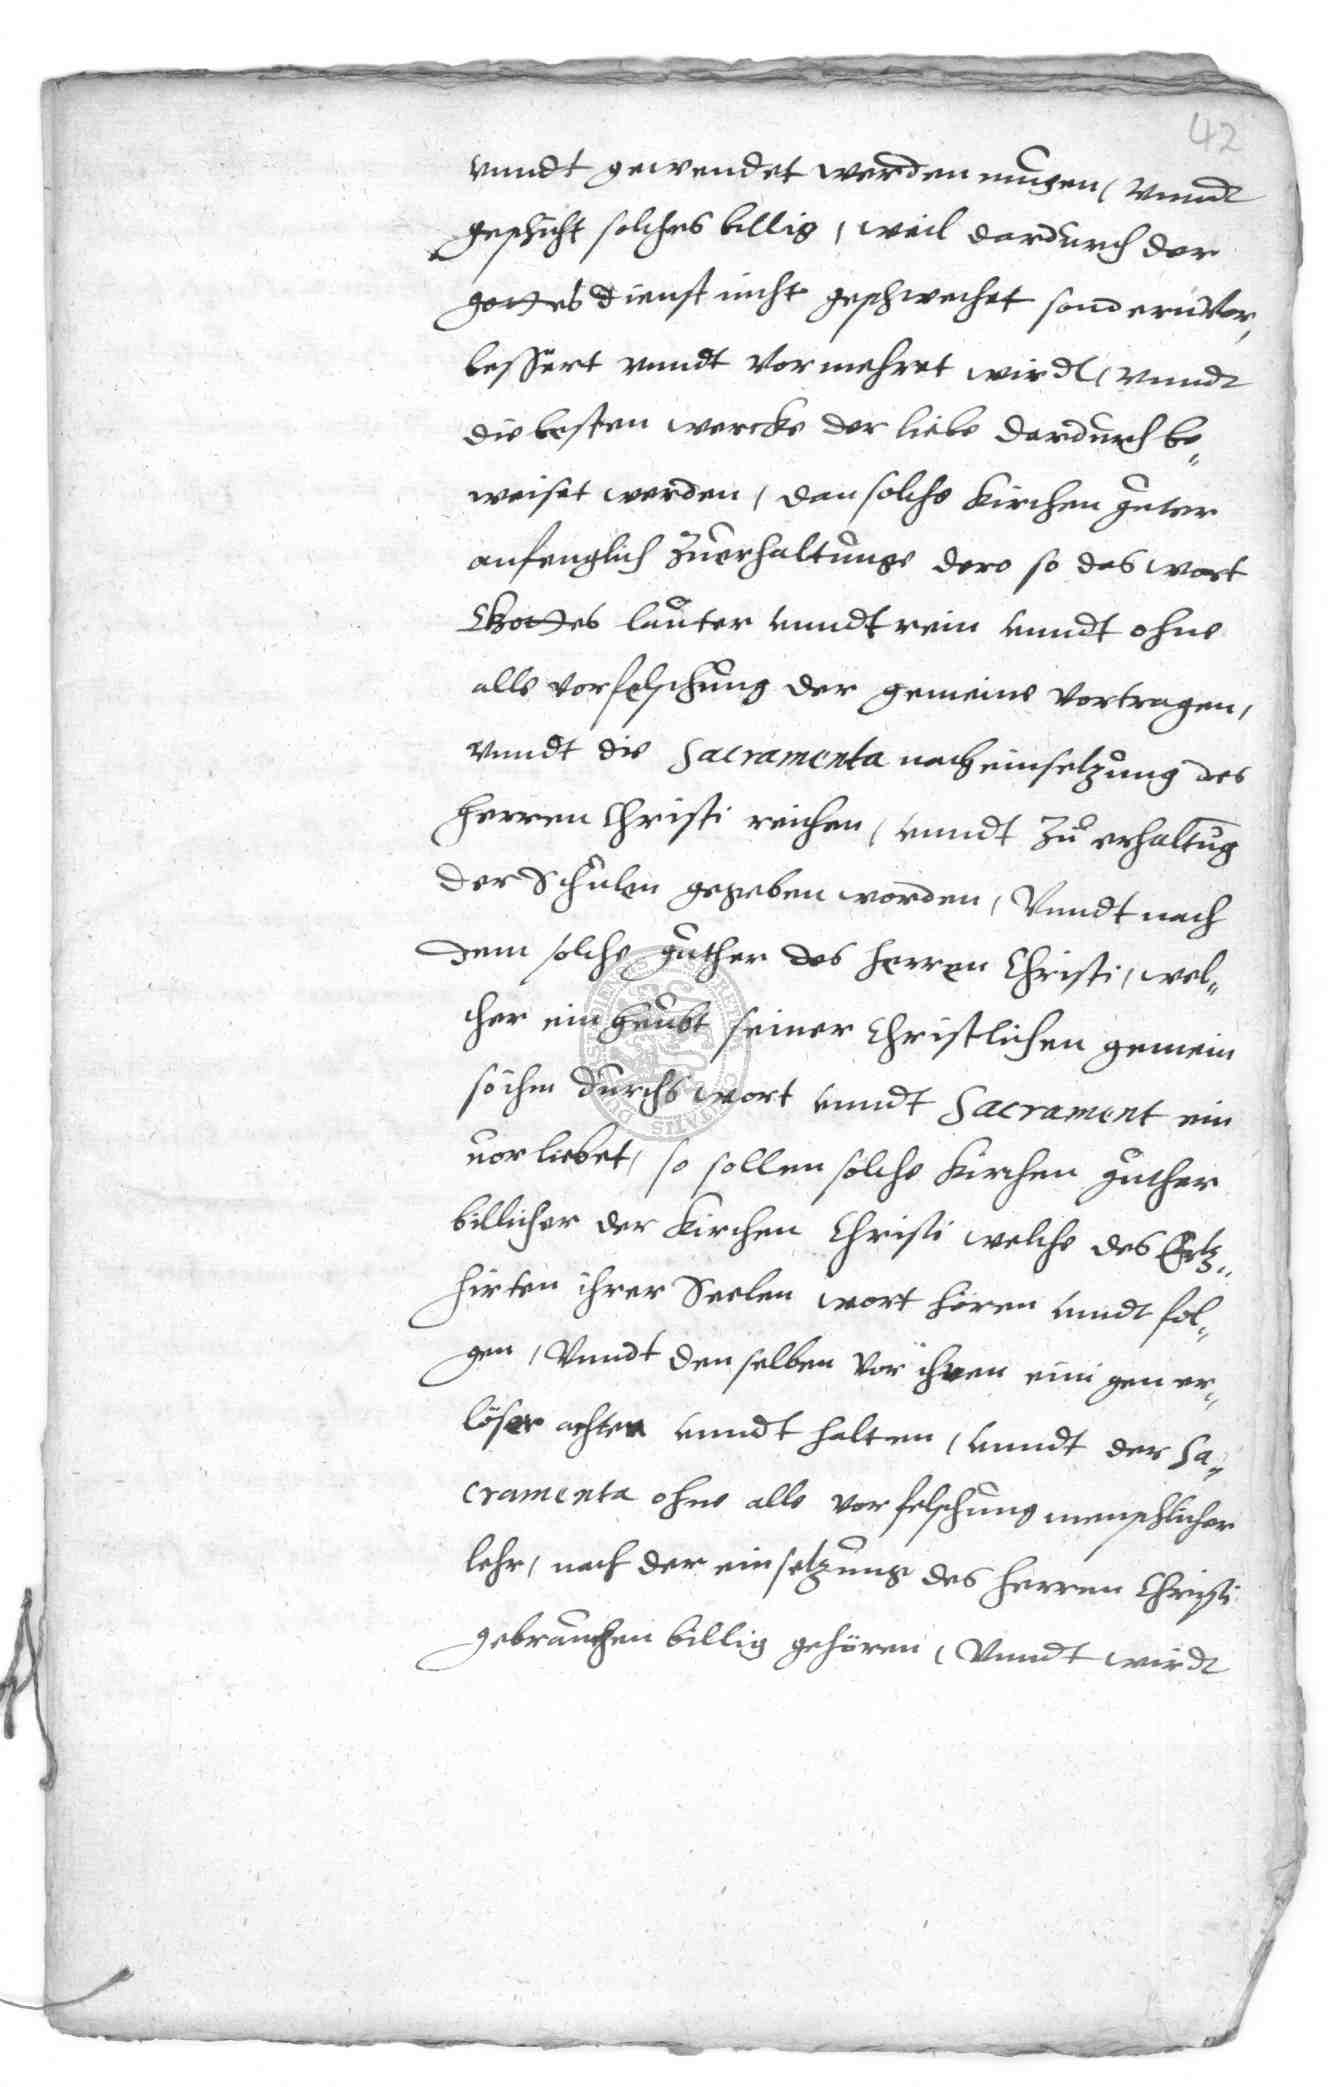 42
vnndt gewendet werden mugen, Vnndt
geschicht solches billig, weil dardurch der
gottes dienst nicht geschwechet sondern Vor,
bessert vnndt Vormehret wirdt, vnndt
die besten wercke der liebe dardurch be„
weiset werden, dan solche Kirchen guter
anfenglich Zuerhaltunge dero so das wort
Gottes lauter vnndt rein vnndt ohne
alle vorfelschung der gemeine Vortragen,
Vnndt die Sacramenta nach einsetzung des
Herren Christi reichen, vnndt Zu erhaltug
der Schulen gegeben worden, Vnndt nach
dem solche guther des Herren Christi, wel„
cher ein heubt seiner Christlichen gemein
so ihm durchs wort vnndt Sacrament ein
vorliebet, so sollen solche Kirchen guther
billicher der Kirchen Christi welche des Ertz„
hirten ihrer Seelen wort hören vnndt fol„
gen, Vnndt denselben Vor ihren einigen er„
löser achten vnndt halten, vnndt der Sa„
cramenta ohne alle vorfelschung menschlicher
lehr, nach der einsetzunge des Herren Christi
gebrauchen billig gehören, Vnndt wirdt